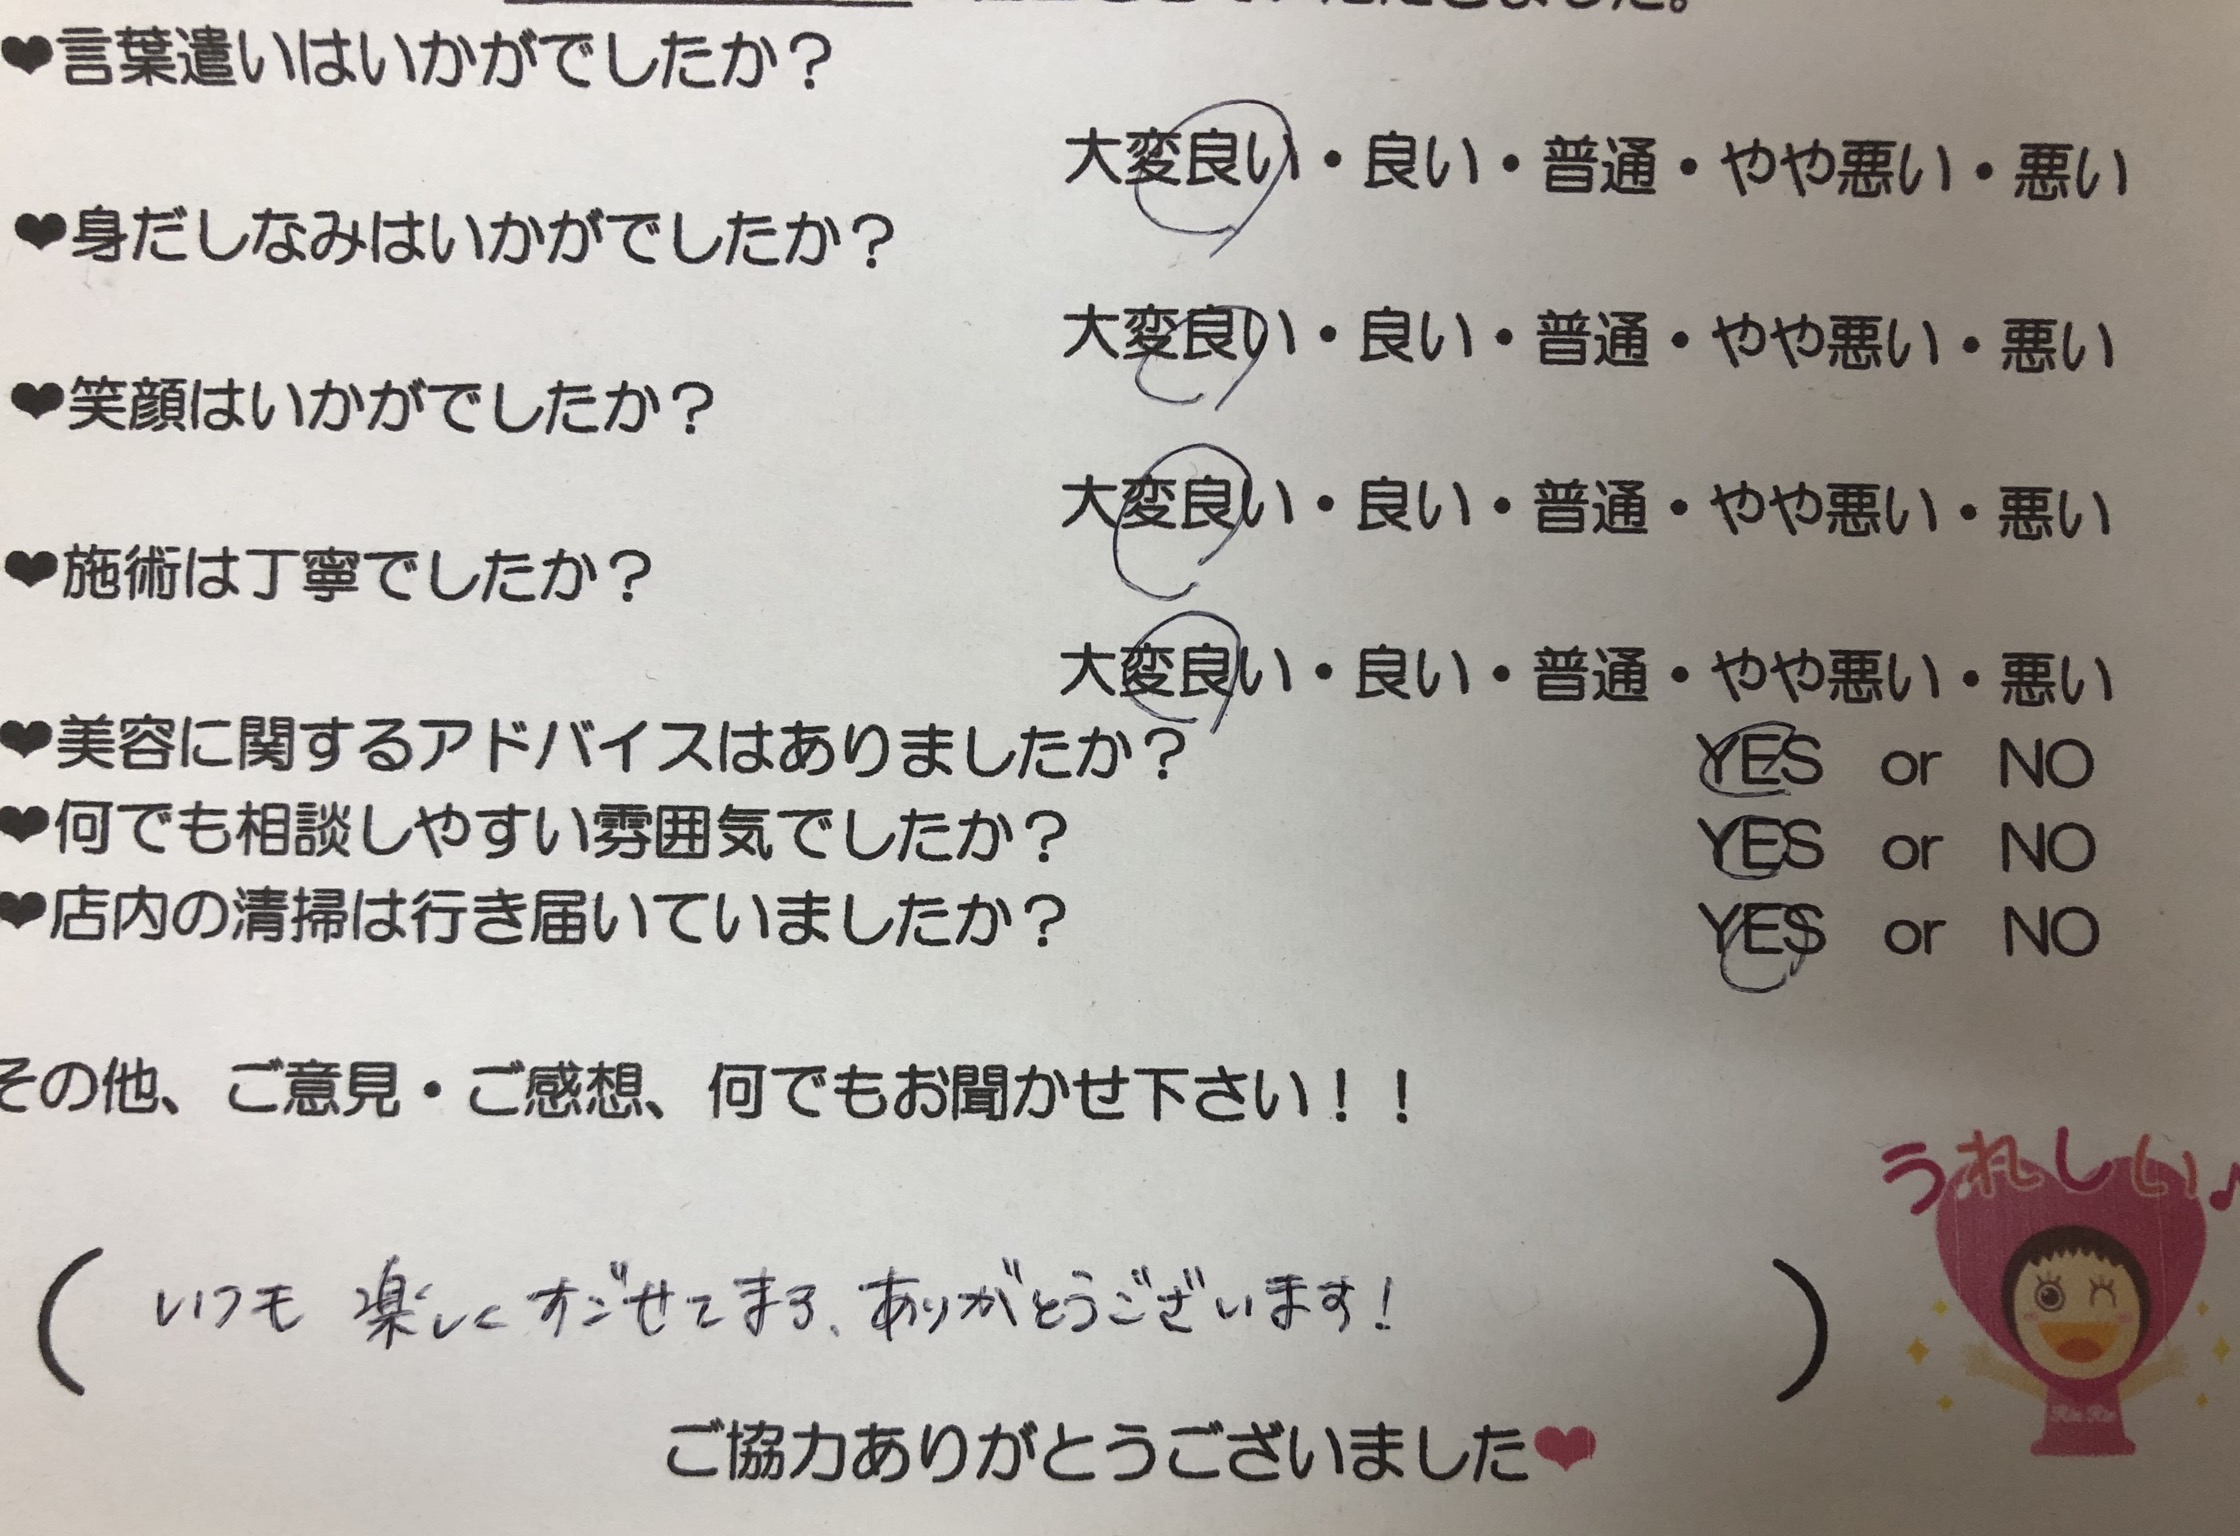 ました。
❤言葉遣いはいかがでしたか？
大変良い・良い・普通・やや悪い・悪い
❤身だしなみはいかがでしたか？
大変良い・良い・普通・やや悪い・悪い
❤笑顔はいかがでしたか？
大変良い・良い・普通・やや悪い・悪い
❤施術は丁寧でしたか？
大変良い・良い・普通・やや悪い・悪い
❤美容に関するアドバイスはありましたか？ YES or NO
❤何でも相談しやすい雰囲気でしたか？ YES or NO
❤店内の清掃は行き届いていましたか？ YES or NO
その他、ご意見・ご感想、何でもお聞かせ下さい！！
うれしい♪
(いつも 楽しくすごせてまる、ありがとうございます!)
Rin Rin
ご協力ありがとうございました❤